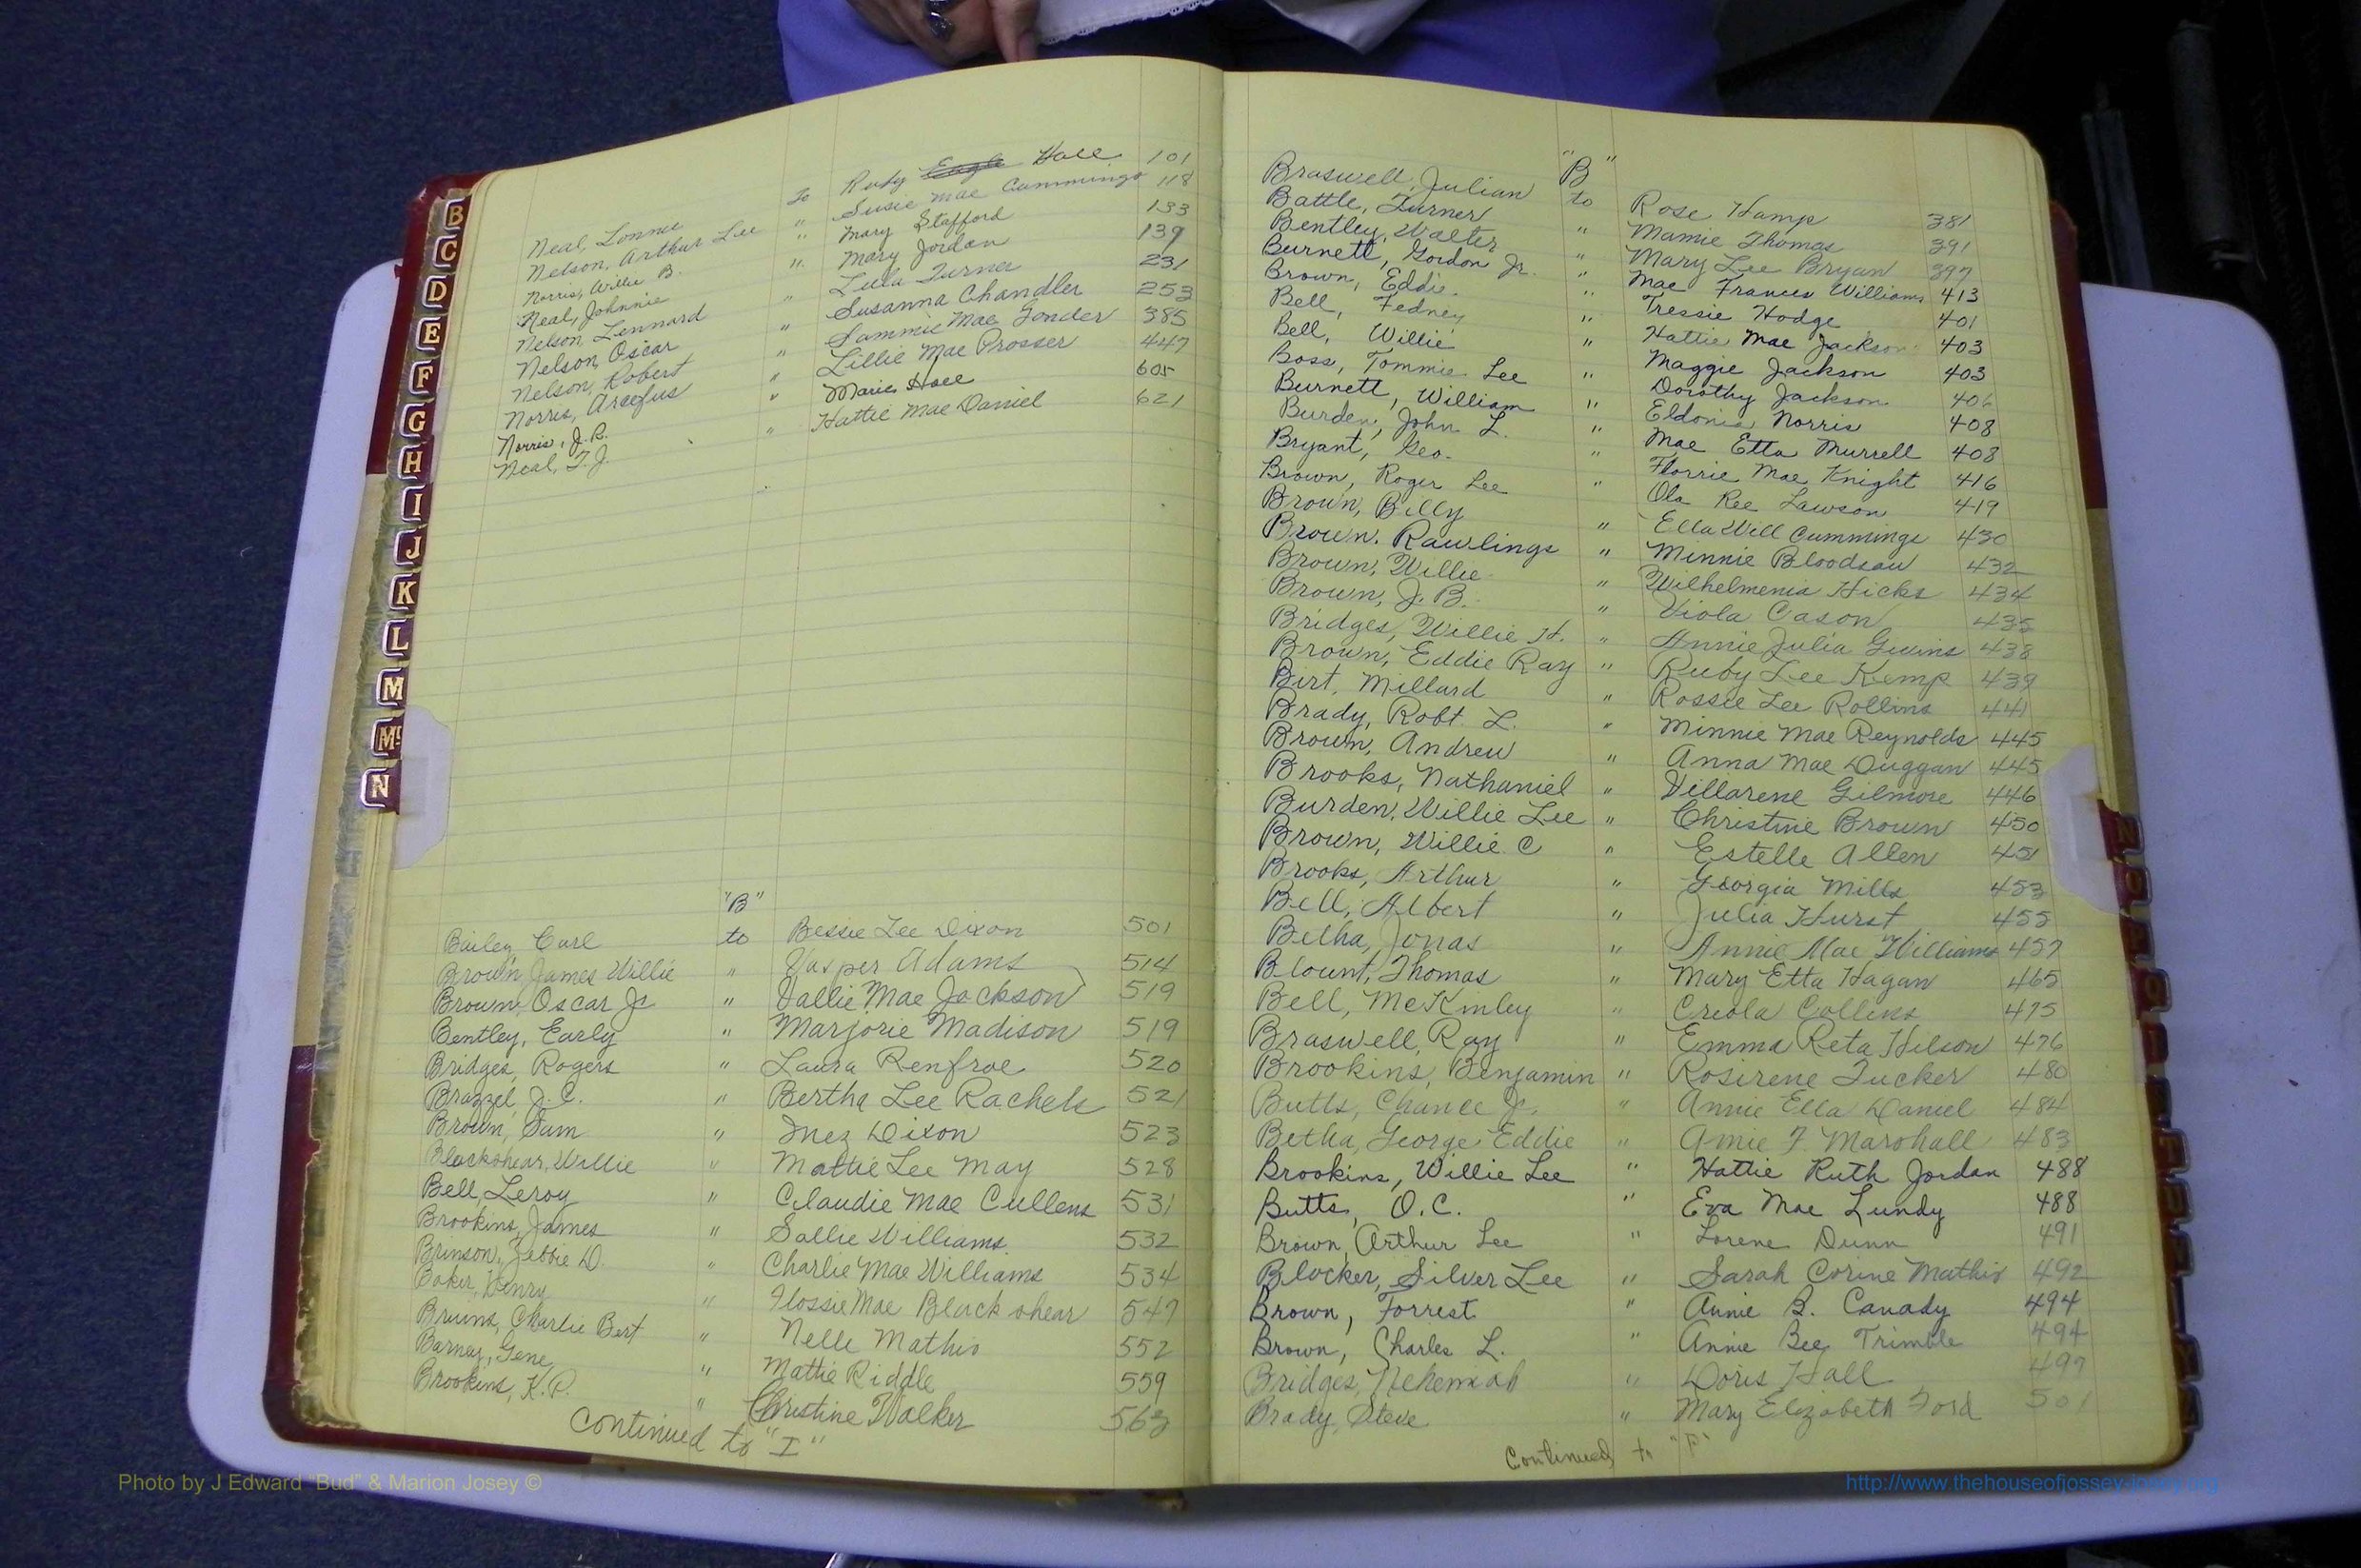 B
C
D
E
F
G
H
I
J
K
L
M
Mc
N
Neal, Lonnie to Ruby Eagle Hall 101
Nelson, Arthur Lee " Susie Mae Cummings 118
Norris, Willie B. " Mary Stafford 133
Neal, Johnnie " Mary Jordan 139
Nelson, Lennard Lula Turner 231
Nelson, Oscar " Susanna Chandler 253
Nelson, Robert " Sammie Mae 385
Norris, " Lillie Mae Prosser 447
Norris, J.R. " Marie Hall 605
Neal, T.J. " Hattie Mae Daniel 621
"B"
Bailey, Carl to Bessie Lee Dixon 501
Brown, James Willie " Adams 514
Brown, Oscar Jr " Vallie Mae Jackson 519
Bentley, Early " Marjorie Madison 519
Bridges, Rogers " Laura Renfroe 520
Brazzel, J.C. " Bertha Lee Rachels 521
Brown, Sam " Inez Dixon 523
Blackshear, Willie " Mattie Lee May 528
Bell, Leroy " Claudie Mae Cullens 531
Brookins, James " Sallie Williams 532
Brinson, D. " Charlie Mae Williams 534
Baker, Henry " Flossie Mae Blackshear 547
Bruns, Charlie Bert " Nelle Mathis 552
Barnay, Gene " Mattie Riddle 559
Brookins, K.P. " Christine Walker 563
Continued to "I"
"B"
Braswell, Julian to Rose Hamp 381
Battle, Turner " Mamie Thomas 391
Bentley, Walter " Mary Lee Bryan 397
Burnett, Gordon Jr. " Mae Frances Williams 413
Brown, Eddie " Tressie Hodge 401
Bell, Fedney " Hattie Mae Jackson 403
Bell, Willie " Maggie Jackson 403
Boss, Tommie Lee " Dorothy Jackson 406
Burnett, William " Eldonia Norris 408
Burden, John L. " Mae Etta Murrell 408
Bryant, Geo. " Florrie Mae Knight 416
Brown, Roger Lee " Ola Ree Lawson 419
Brown, Billy " Ella Will Cummings 430
Brown. Rawlings " Minnie Bloodsaw 432
Brown, Willie " Wilhelmenia Hicks 434
Brown, J.B. " Viola Cason 435
Bridges, Willie H. " Annie Julia Givins 438
Brown, Eddie Ray " Ruby Lee Kemp 439
Birt, Millard " Rossie Lee Rollins 441
Brady, Robt. L. " Minnie Mae Reynolds 445
Brown, Andrew " Anna Mae Duggan 445
Brooks, Nathaniel " Villarene Gilmore 446
Burden, Willie Lee " Christine Brown 450
Brown, Willie C " Estelle Allen 451
Brooks, Arthur " Georgia Mills 453
Bell, Albert " Julia Hurst 455
Betha, Jonas " Annie Mae Williams 457
Blount, Thomas " Mary Etta Hagan 465
Bell, McKinley " Creola Collins 475
Braswell, Ray " Emma Reta Hilson 476
Brookins, Benjamin " Rosirene Tucker 480
Butts, Chance Jr. " Annie Ella Daniel 484
Betha, George Eddie " Amie F. Marshall 483
Brookins, Willie Lee " Hattie Ruth Jordan 488
Butts, O.C. " Eva Mae Lundy 488
Brown, Arthur Lee " Lorene Dunn 491
Blocker, Silver Lee " Sarah Corine Mathis 492
Brown, Forrest " Annie B. Canady 494
Brown, Charles L. " Annie Bee Trimble 494
Bridges, Nehemiah " Doris Hall 497
Brady, Steve " Mary Elizabeth Ford 501
Continued to "P"
Photo by J Edward "Bud" & Marion Josey ©
http://www.thehouseofjossey-josey.org